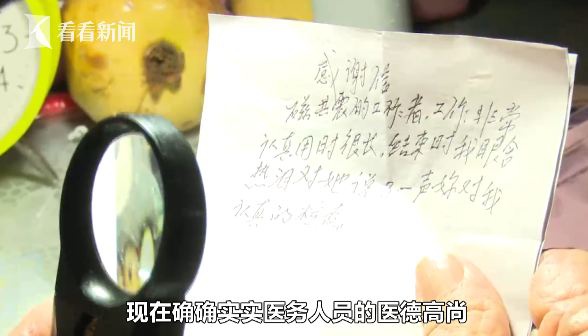 看看新闻
3
感谢信
磁共震的工作者,工作非常
认真用时很长,结束时我眼含
热泪对她说了一声妳对我
认真的
现在确确实实医务人员的医德高尚